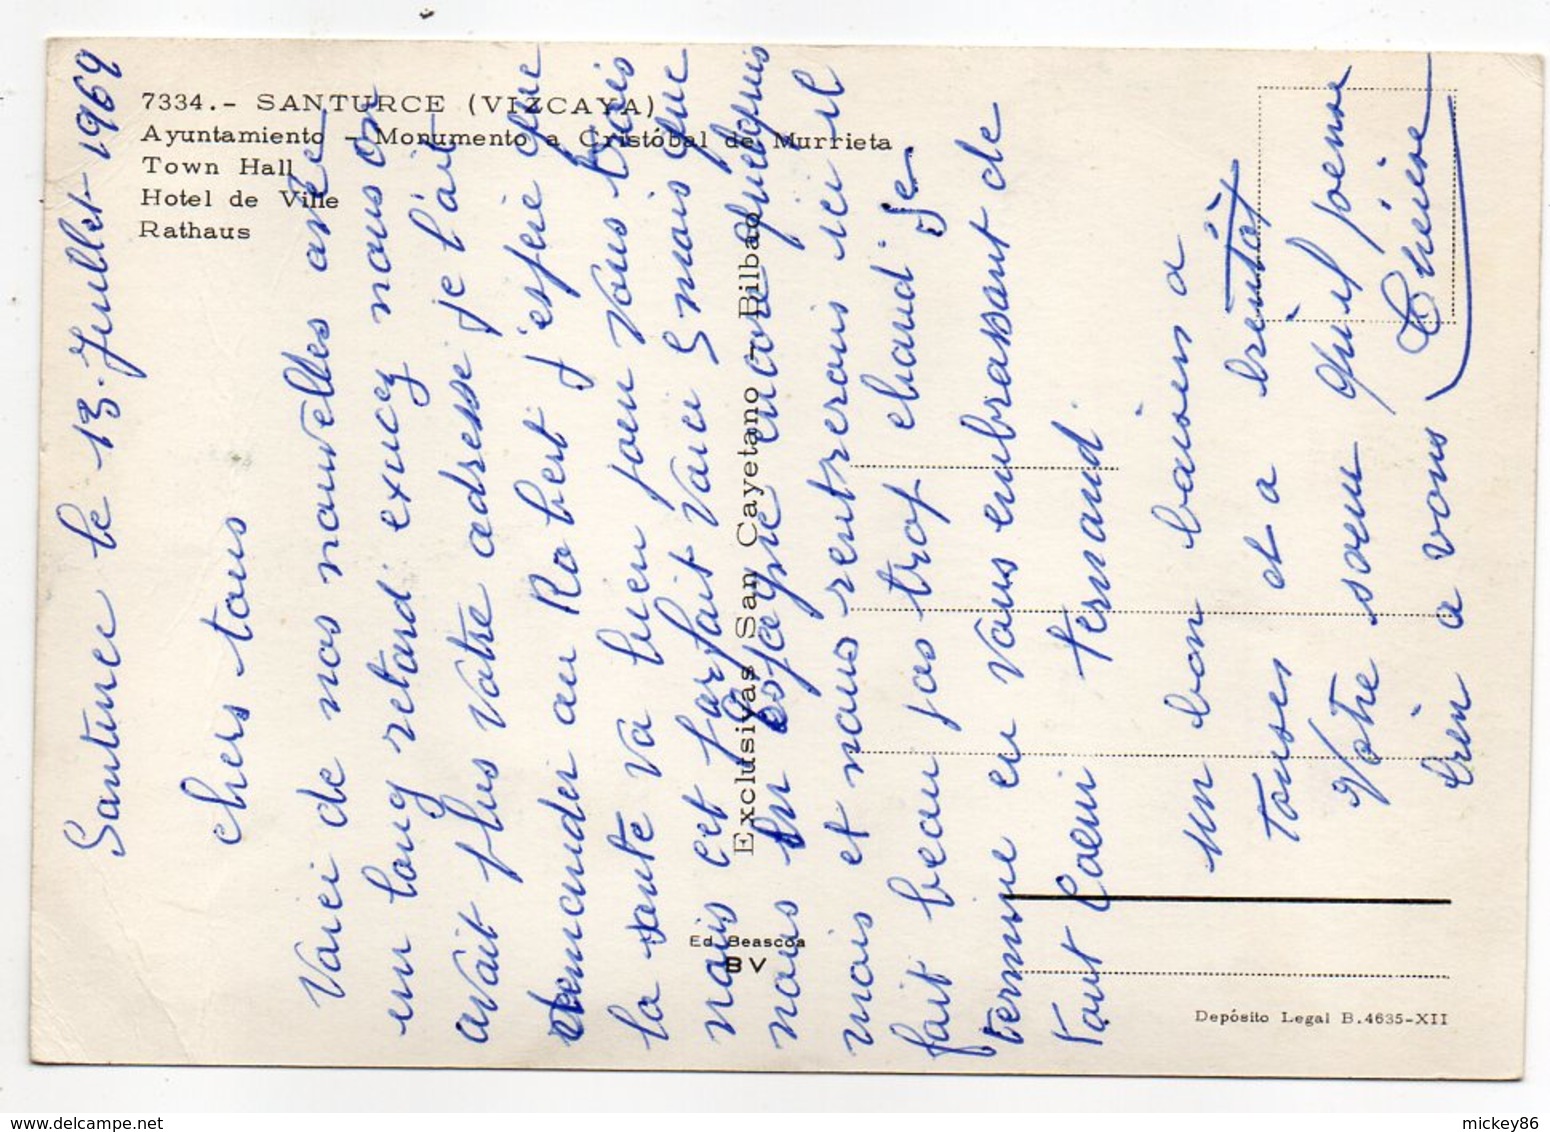 7334.- SANTURCE (VIZCAYA)
Ayuntamiento - Monumento a Cristóbal de Murrieta
Town Hall
Hotel de Ville
Rathaus
Exclusivas San Cayetano - Bilbao
Ed. Beascoa
BV
Depósito Legal B.4635-XII
Santurce le 13. Juillet - 1969
chers tous
Voici de nos nouvelles avec
un long retard excucez nous on
avait plus votre adresse je l'ait
demander au Robert j'espere que
la sante va bien pour vous trois
nais cet parfait voici 5 mois que
nous en espagne encore quelquis
mois et nous rentrerons ici il
fait beau pas trop chaud je
termine en vous embrassant de
tout coeur Fernand
un bon baisers a
toutes et a bientôt
Votre soeur qui pense
bien a vous Thérèse
mickey86